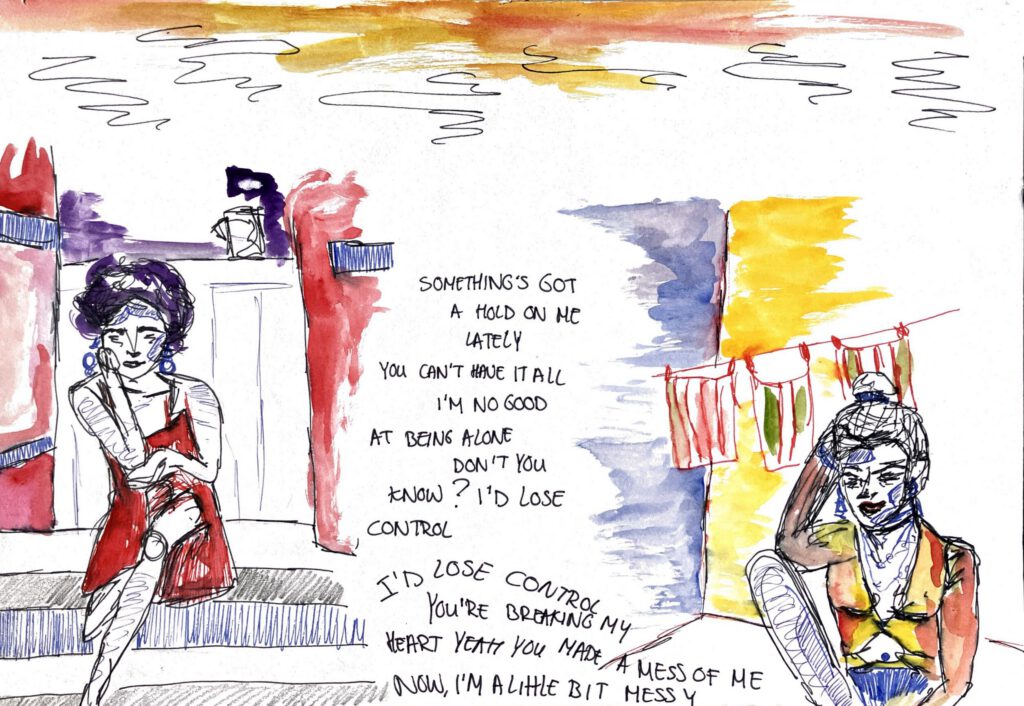 SOMETHING'S GOT
A HOLD ON ME
LATELY
YOU CAN'T HAVE IT ALL
I'M NO GOOD
AT BEING ALONE
DON'T YOU
KNOW? I'D LOSE
CONTROL
I'D LOSE CONTROL
YOU'RE BREAKING MY
HEART YEAH YOU MADE A MESS OF ME
NOW, I'M A LITTLE BIT MESSY